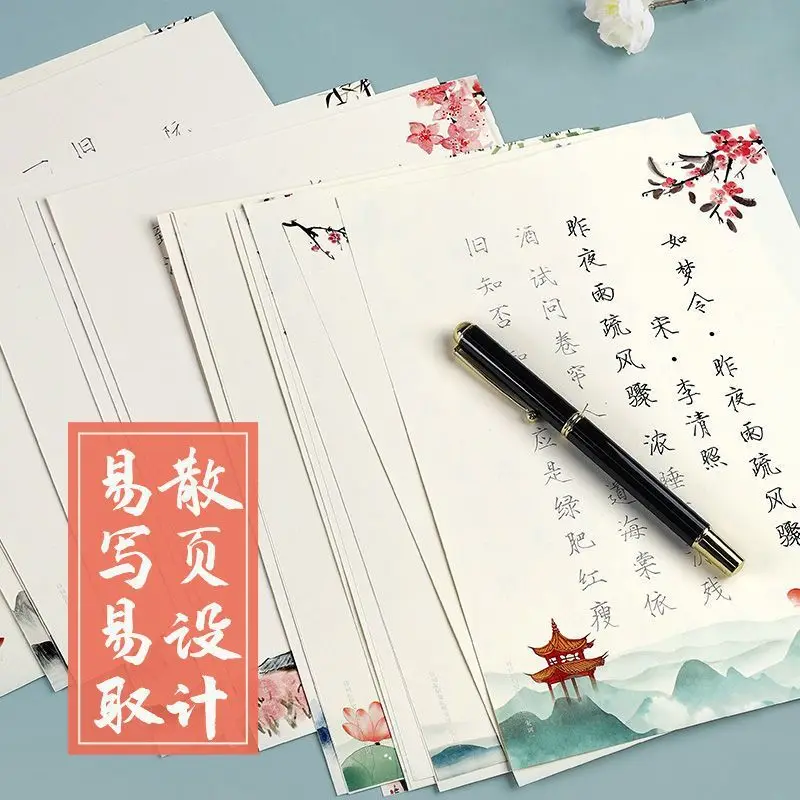 如梦令·昨夜雨疏风骤
宋·李清照
昨夜雨疏风骤 浓睡 残
酒 试问卷帘人 道海棠依
旧 知否 知 应是绿肥红瘦
旧
散页设计
易写易取